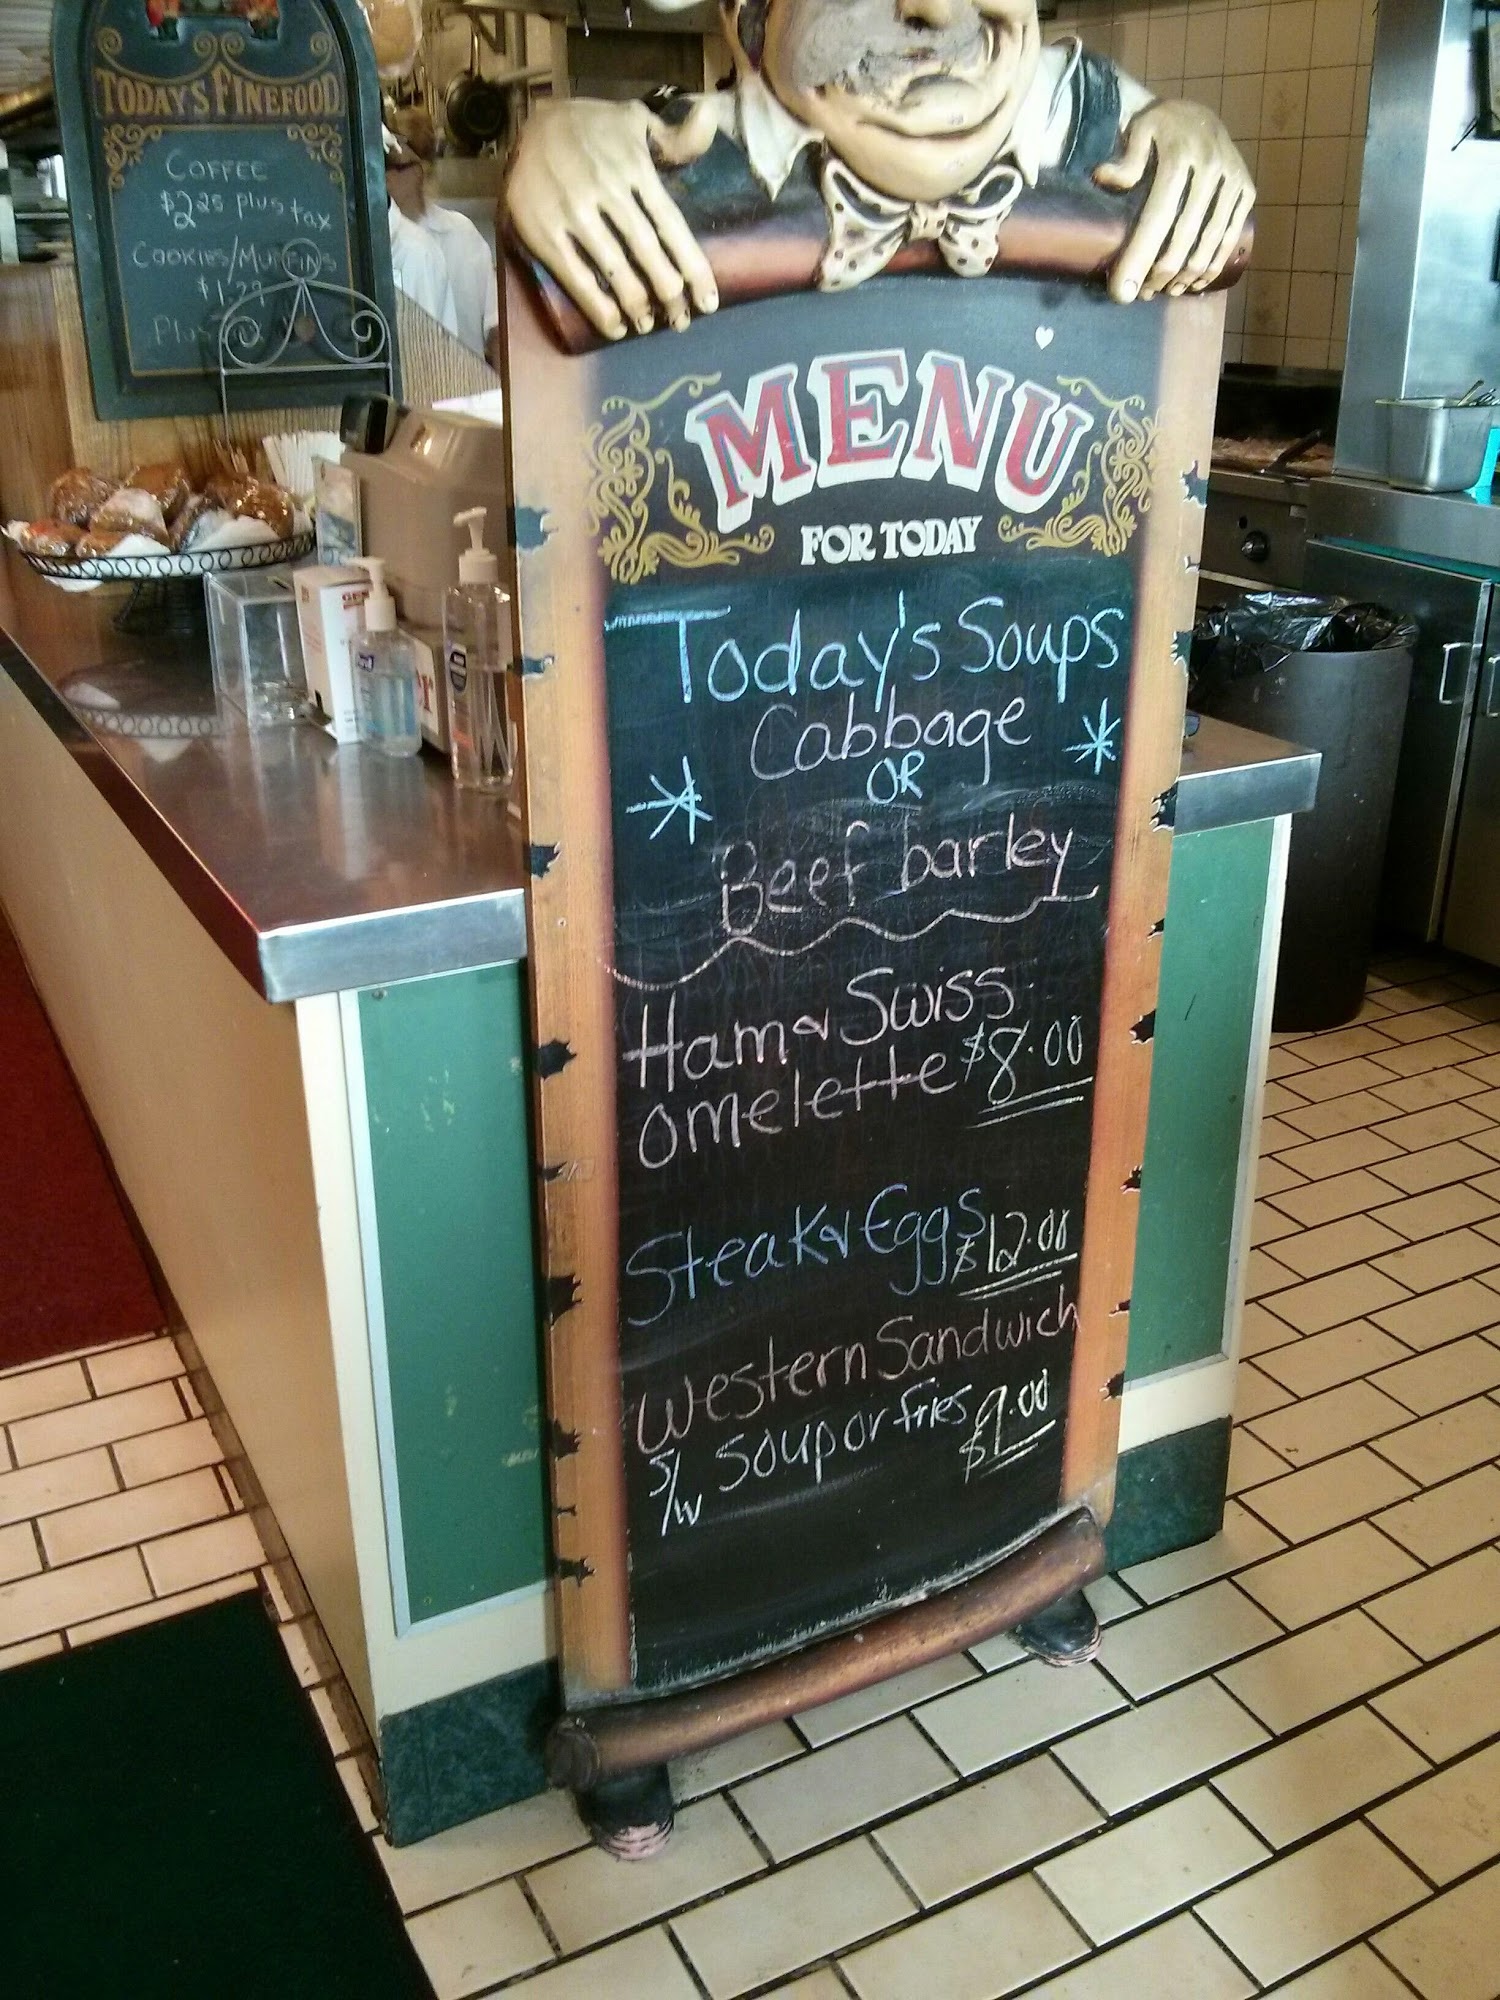 TODAY'S FINEFOOD
COFFEE
$2.25 plus tax
COOKIES/MUFFINS
$1.29
Plus
MENU
FOR TODAY
Today's Soups
Cabbage
OR
Beef barley
Ham & Swiss
omelette $8.00
Steak & Eggs $12.00
Western Sandwich
S/W soup or fries $9.00